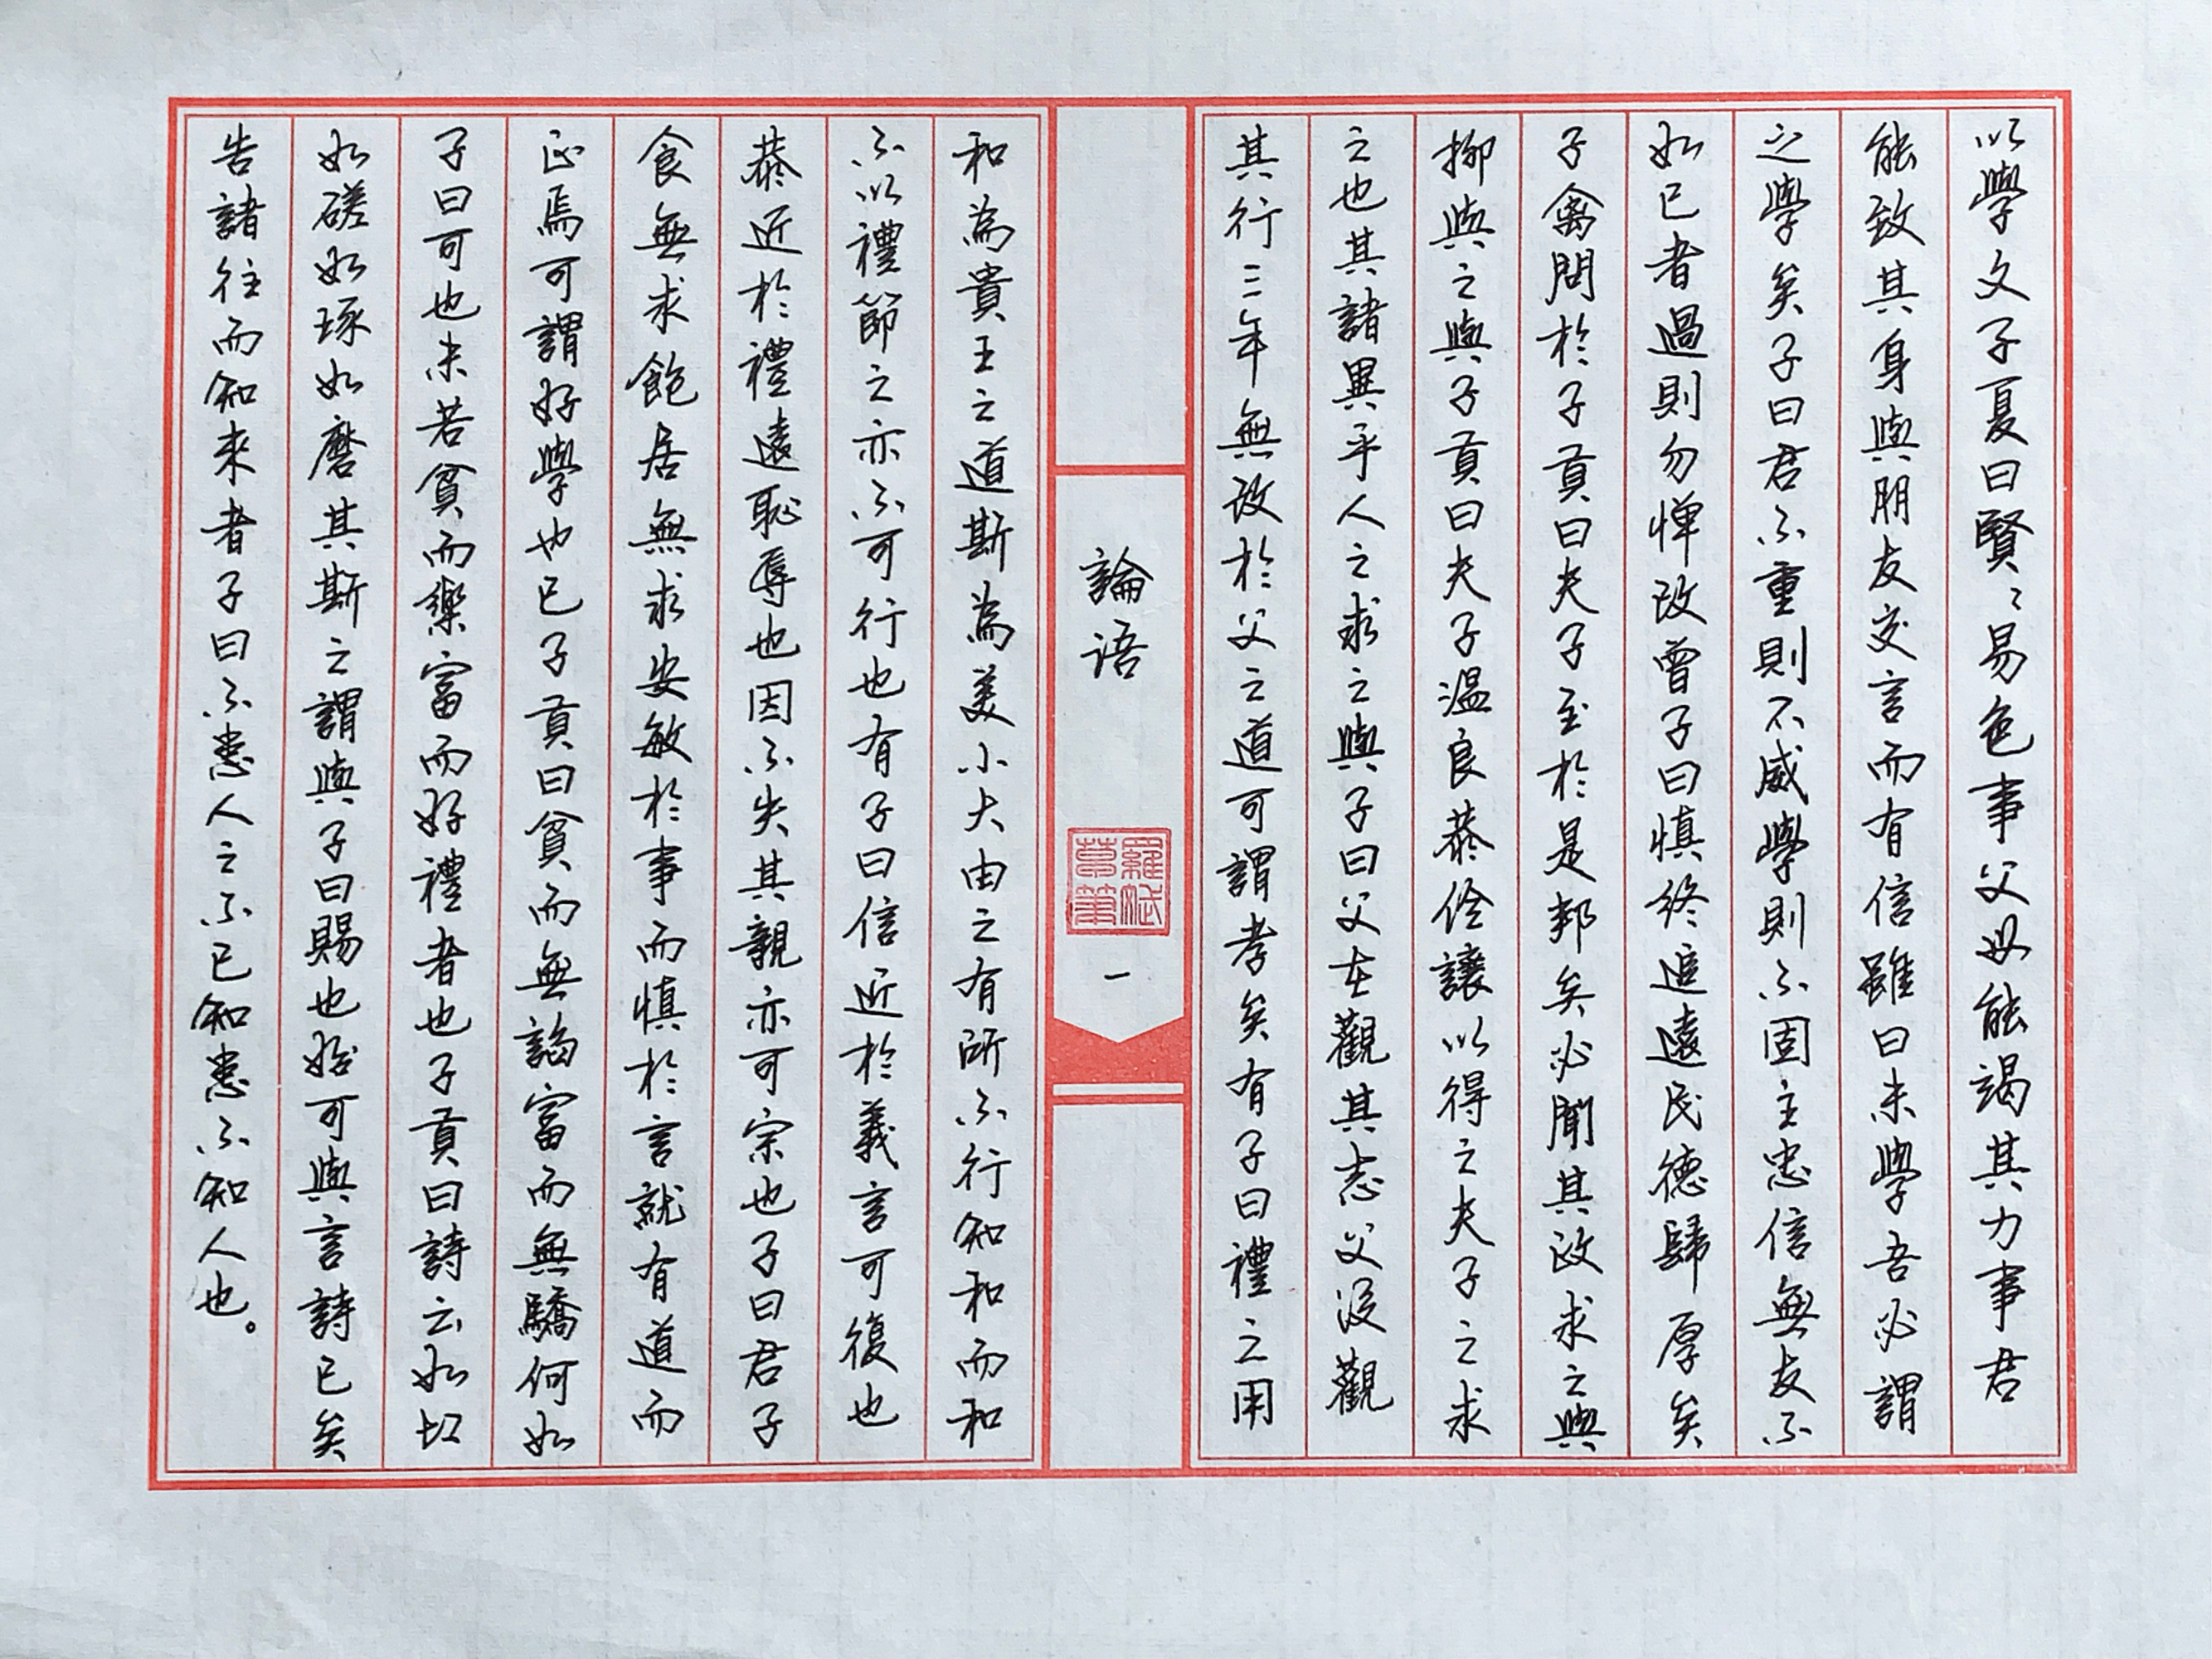 以學文子夏曰賢〻易色事父母能竭其力事君
能致其身與朋友交言而有信雖曰未學吾必謂
之學矣子曰君不重則不威學則不固主忠信無友不
如已者過則勿憚改曾子曰慎終追遠民德歸厚矣
子禽問於子貢曰夫子至於是邦矣必聞其政求之與
抑與之與子貢曰夫子溫良恭儉讓以得之夫子之求
之也其諸異乎人之求之與子曰父在觀其志父沒觀
其行三年無改於父之道可謂孝矣有子曰禮之用
論语
羅斌
草筆
一
和為貴王之道斯為美小大由之有所不行知和而和
不以禮節之亦不可行也有子曰信近於義言可復也
恭近於禮遠恥辱也因不失其親亦可宗也子曰君子
食無求飽居無求安敏於事而慎於言就有道而
正焉可謂好學也已子貢曰貧而無諂富而無驕何如
子曰可也未若貧而樂富而好禮者也子貢曰詩云如切
如磋如琢如磨其斯之謂與子曰賜也始可與言詩已矣
告諸往而知來者子曰不患人之不已知患不知人也。